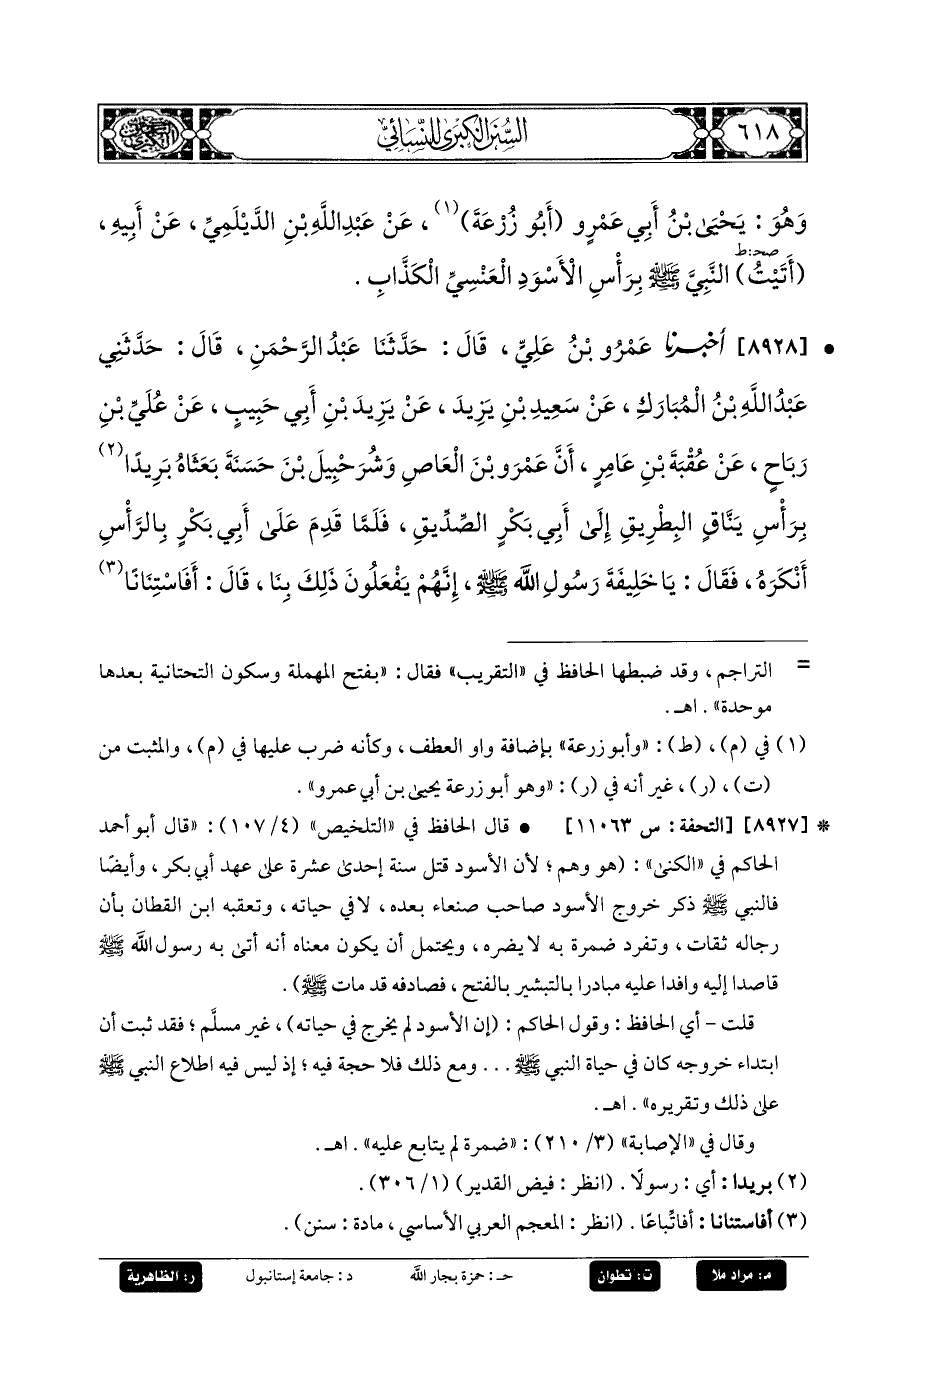 ٦١٨
السُّنَنُ الكبرى للنَّسَائي
وَهُوَ : يَحْيَىٰ بْنُ أَبِي عَمْرٍو (أَبُو زُرْعَةَ)(١) ، عَنْ عَبْدِاللَّهِ بْنِ الدَّيْلَمِيِّ ، عَنْ أَبِيهِ ،
صحـ: ط
(أَتَيْتُ) النَّبِيَّ ﷺ بِرَأْسِ الْأَسْوَدِ الْعَنْسِيِّ الْكَذَّابِ .
• [٨٩٢٨] أخبرنا عَمْرُو بْنُ عَلِيٍّ ، قَالَ : حَدَّثَنَا عَبْدُ الرَّحْمَنِ ، قَالَ : حَدَّثَنِي
عَبْدُاللَّهِ بْنُ الْمُبَارَكِ ، عَنْ سَعِيدِ بْنِ يَزِيدَ ، عَنْ يَزِيدَ بْنِ أَبِي حَبِيبٍ ، عَنْ عُلَيِّ بْنِ
رَبَاحٍ ، عَنْ عُقْبَةَ بْنِ عَامِرٍ ، أَنَّ عَمْرَو بْنَ الْعَاصِ وَشُرَحْبِيلَ بْنَ حَسَنَةَ بَعَثَاهُ بَرِيدًا(٢)
بِرَأْسِ يَنَّاقٍ الْبِطْرِيقِ إِلَىٰ أَبِي بَكْرٍ الصِّدِّيقِ ، فَلَمَّا قَدِمَ عَلَىٰ أَبِي بَكْرٍ بِالرَّأْسِ
أَنْكَرَهُ ، فَقَالَ : يَا خَلِيفَةَ رَسُولِ اللَّهِ ﷺ ، إِنَّهُمْ يَفْعَلُونَ ذَلِكَ بِنَا ، قَالَ : أَفَاسْتِنَانًا(٣)
= التراجم ، وقد ضبطها الحافظ في «التقريب» فقال : «بفتح المهملة وسكون التحتانية بعدها
موحدة» . اهـ .
(١) في (م) ، (ط) : «وأبو زرعة» بإضافة واو العطف ، وكأنه ضرب عليها في (م) ، والمثبت من
(ت) ، (ر) ، غير أنه في (ر) : «وهو أبو زرعة يحيىٰ بن أبي عمرو» .
* [٨٩٢٧] [التحفة : س ١١٠٦٣] • قال الحافظ في «التلخيص» (٤/ ١٠٧) : «قال أبو أحمد
الحاكم في «الكنىٰ» : (هو وهم ؛ لأن الأسود قتل سنة إحدىٰ عشرة علىٰ عهد أبي بكر ، وأيضًا
فالنبي ﷺ ذكر خروج الأسود صاحب صنعاء بعده ، لا في حياته ، وتعقبه ابن القطان بأن
رجاله ثقات ، وتفرد ضمرة به لا يضره ، ويحتمل أن يكون معناه أنه أتىٰ به رسول اللَّه ﷺ
قاصدا إليه وافدا عليه مبادرا بالتبشير بالفتح ، فصادفه قد مات ﷺ) .
قلت – أي الحافظ : وقول الحاكم : (إن الأسود لم يخرج في حياته) ، غير مسلَّم ؛ فقد ثبت أن
ابتداء خروجه كان في حياة النبي ﷺ ... ومع ذلك فلا حجة فيه ؛ إذ ليس فيه اطلاع النبي ﷺ
علىٰ ذلك وتقريره» . اهـ .
وقال في «الإصابة» (٣/ ٢١٠) : «ضمرة لم يتابع عليه» . اهـ .
(٢) بريدا : أي : رسولًا . (انظر : فيض القدير) (١/ ٣٠٦) .
(٣) أفاستنانا : أفاتِّباعًا . (انظر : المعجم العربي الأساسي ، مادة : سنن) .
م: مراد ملا
ت: تطوان
حـ : حمزة بجار اللَّه
د : جامعة إستانبول
ر: الظاهرية